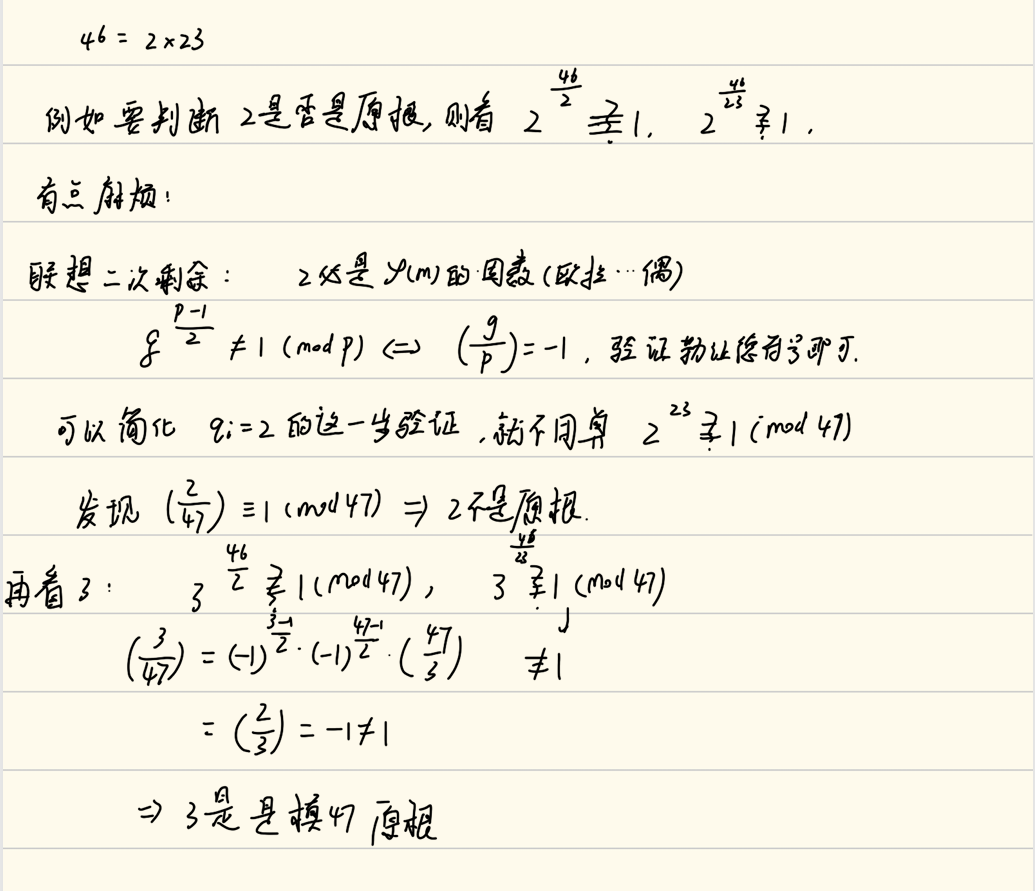 46 = 2×23
例如要判断 2是否是原根, 则看 2^{\frac{46}{2}} \overset{?}{≢} 1, 2^{\frac{46}{23}} \overset{?}{≢} 1 .
有点麻烦:
联想二次剩余: 2必是φ(m)的因数(欧拉…偶)
g^{\frac{p-1}{2}} ≠ 1 (mod p) ⇔ (\frac{g}{p}) = -1 , 验证勒让德符号即可.
可以简化 q_i=2 的这一步验证 , 就不用算 2^{23} \overset{?}{≢} 1 (mod 47)
发现 (\frac{2}{47}) ≡ 1 (mod 47) ⇒ 2不是原根.
再看3: 3^{\frac{46}{2}} \overset{?}{≢} 1 (mod 47) , 3^{\frac{46}{23}} \overset{?}{≢} 1 (mod 47)
(\frac{3}{47}) = (-1)^{\frac{3-1}{2}} · (-1)^{\frac{47-1}{2}} · (\frac{47}{3}) ≠ 1
= (\frac{2}{3}) = -1 ≠ 1
⇒ 3是是模47 原根